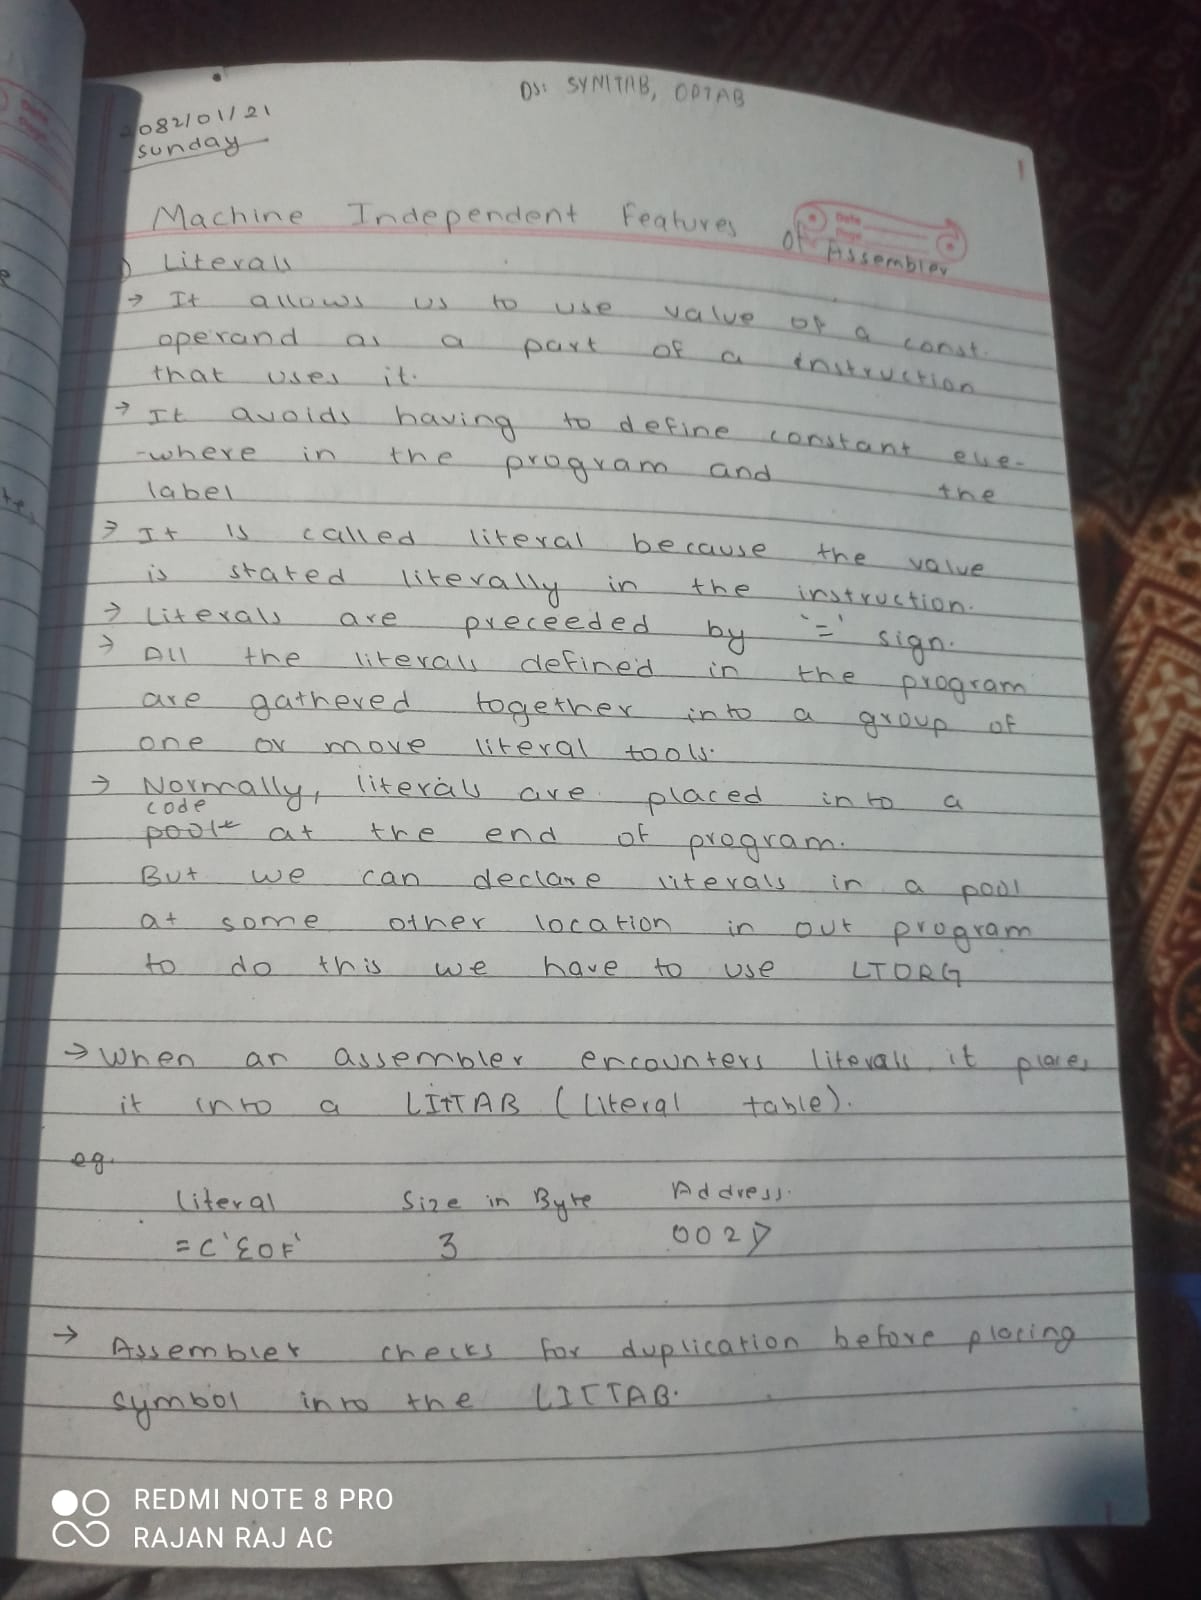 DS: SYMTAB, OPTAB
2082/01/21
sunday
Machine Independent Features of Assembler
1) Literals
→ It allows us to use value of a const.
operand as a part of a instruction
that uses it.
→ It avoids having to define constant else-
-where in the program and the
label
→ It is called literal because the value
is stated literally in the instruction.
→ Literals are preceeded by '=' sign.
→ All the literals defined in the program
are gathered together into a group of
one or more literal tools.
→ Normally, literals are placed into a
code
pool at the end of program.
But we can declare literals in a pool
at some other location in out program
to do this we have to use LTORG
→ When an assembler encounters literals, it places
it into a LITTAB (literal table).
eg.
Literal Size in Byte Address.
=C'EOF' 3 002D
→ Assembler checks for duplication before placing
symbol into the LITTAB.
REDMI NOTE 8 PRO
RAJAN RAJ AC